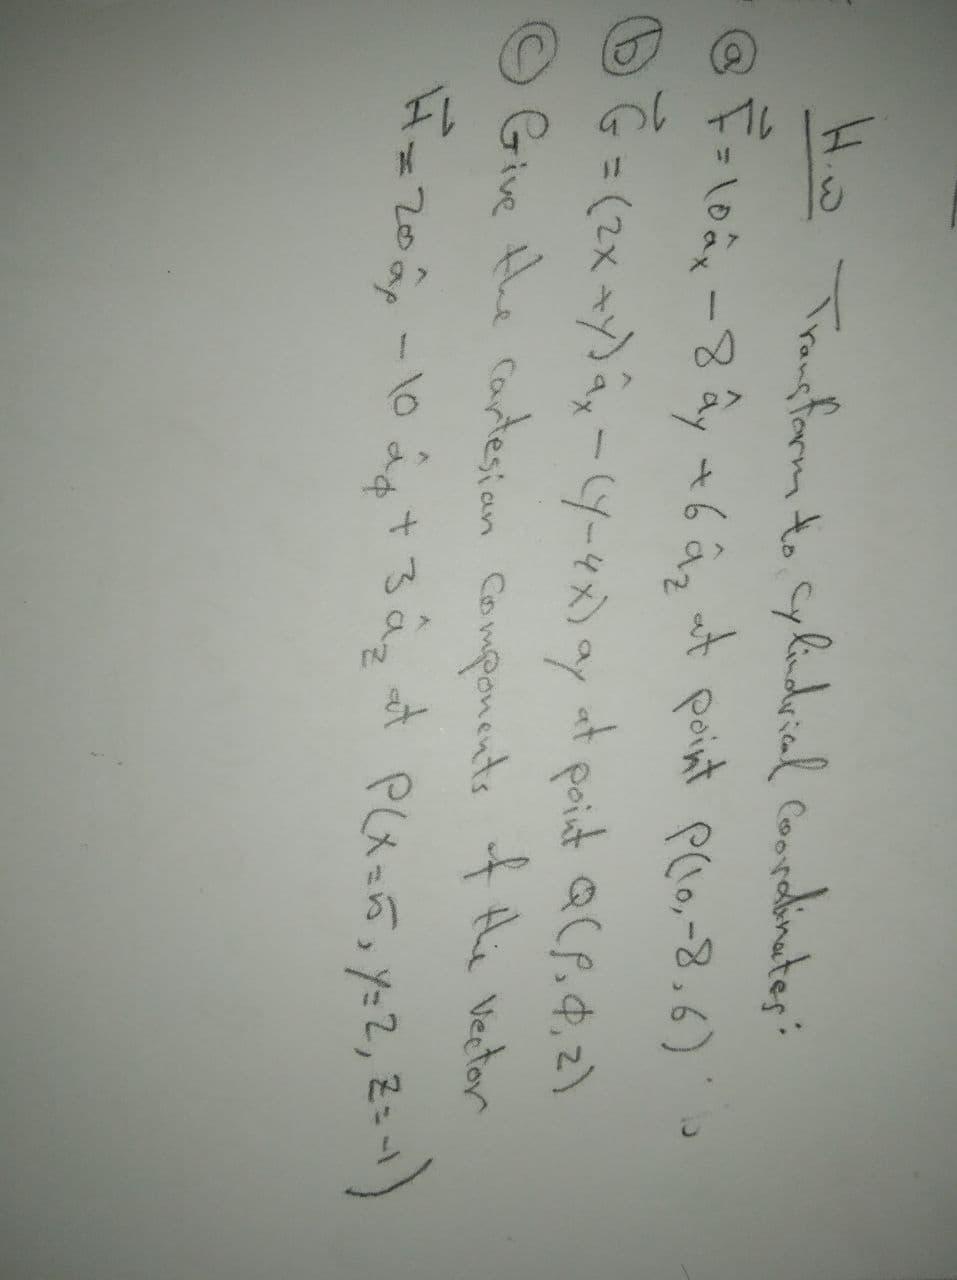 H.w Transform to cylindrical Coordinates:
ⓐ F⃗ = 10 âx - 8 ây + 6 âz at point P(10,-8,6)
ⓑ G⃗ = (2x+y) âx - (y-4x) ay at point Q(ρ,Φ,z)
ⓒ Give the Cartesian Components of the vector
H⃗ = 20 âρ - 10 âΦ + 3 âz at P(x=5, y=2, z=-1)